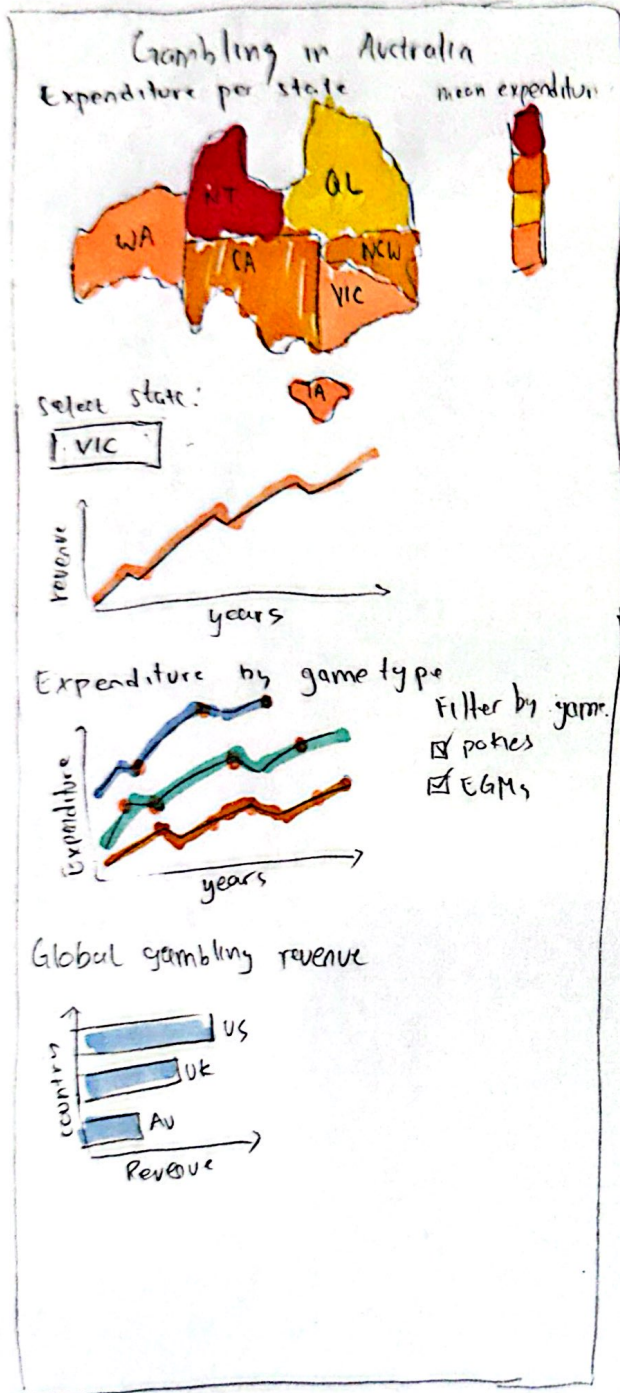 Gambling in Australia
Expenditure per state
mean expenditur
NT
QL
WA
CA
NCW
VIC
TA
Select state:
VIC
revenue
years
Expenditure by game type
Filter by game.
pokies
EGMs
Expenditure
years
Global gambling revenue
US
UK
AU
country
Revenue